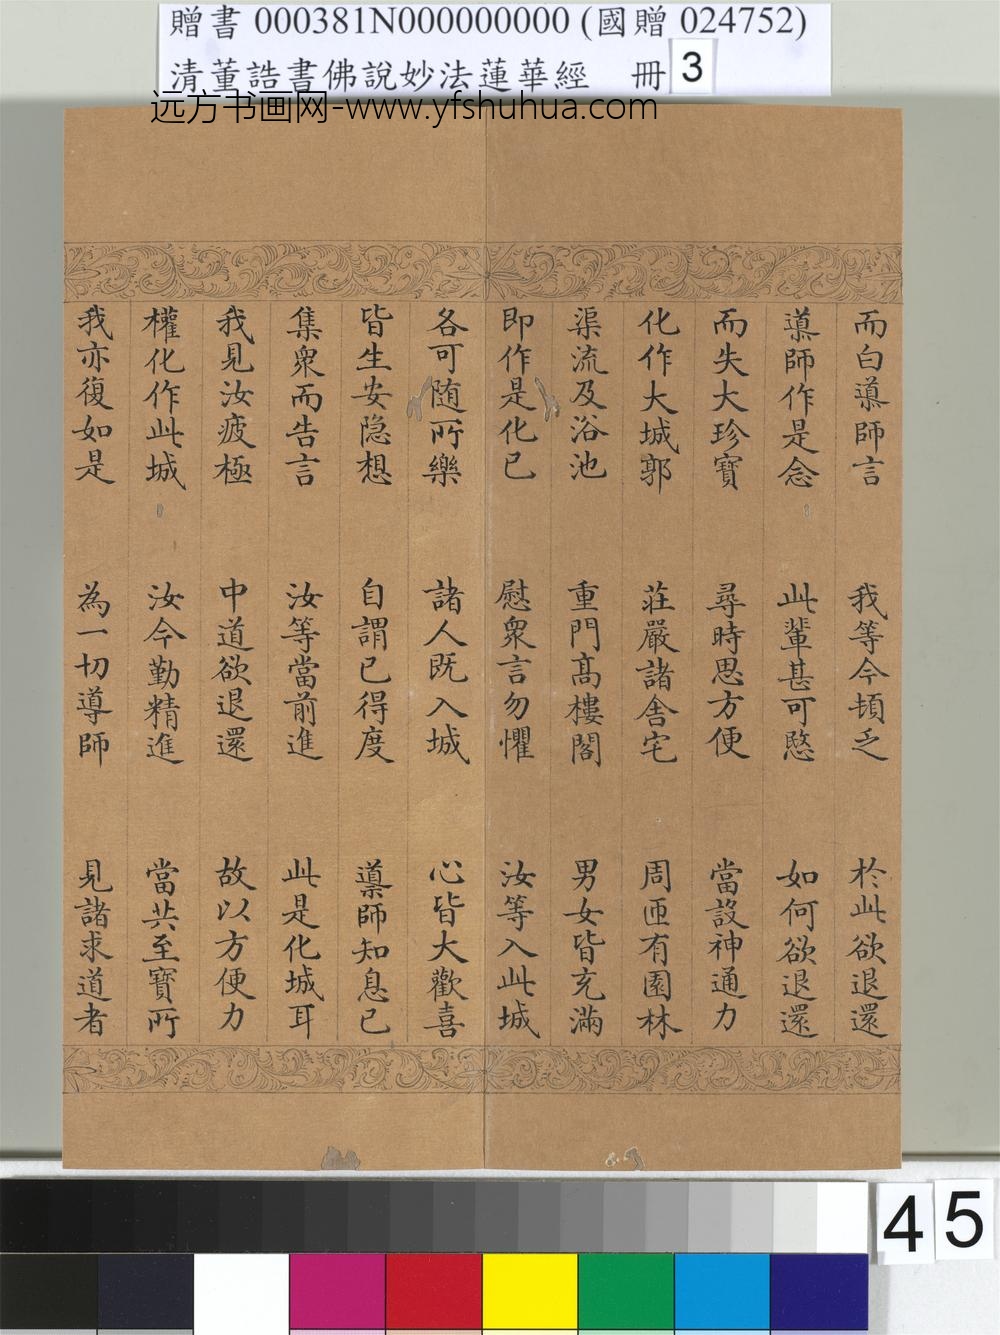 贈書 000381N000000000 (國贈 024752)
清董誥書佛說妙法蓮華經 冊 3
远方书画网-www.yfshuhua.com
而白導師言 我等今頓乏 於此欲退還
導師作是念 此輩甚可愍 如何欲退還
而失大珍寶 尋時思方便 當設神通力
化作大城郭 莊嚴諸舍宅 周匝有園林
渠流及浴池 重門高樓閣 男女皆充滿
即作是化已 慰眾言勿懼 汝等入此城
各可随所樂 諸人既入城 心皆大歡喜
皆生安隐想 自謂已得度 導師知息已
集眾而告言 汝等當前進 此是化城耳
我見汝疲極 中道欲退還 故以方便力
權化作此城 汝今勤精進 當共至寶所
我亦復如是 為一切導師 見諸求道者
45